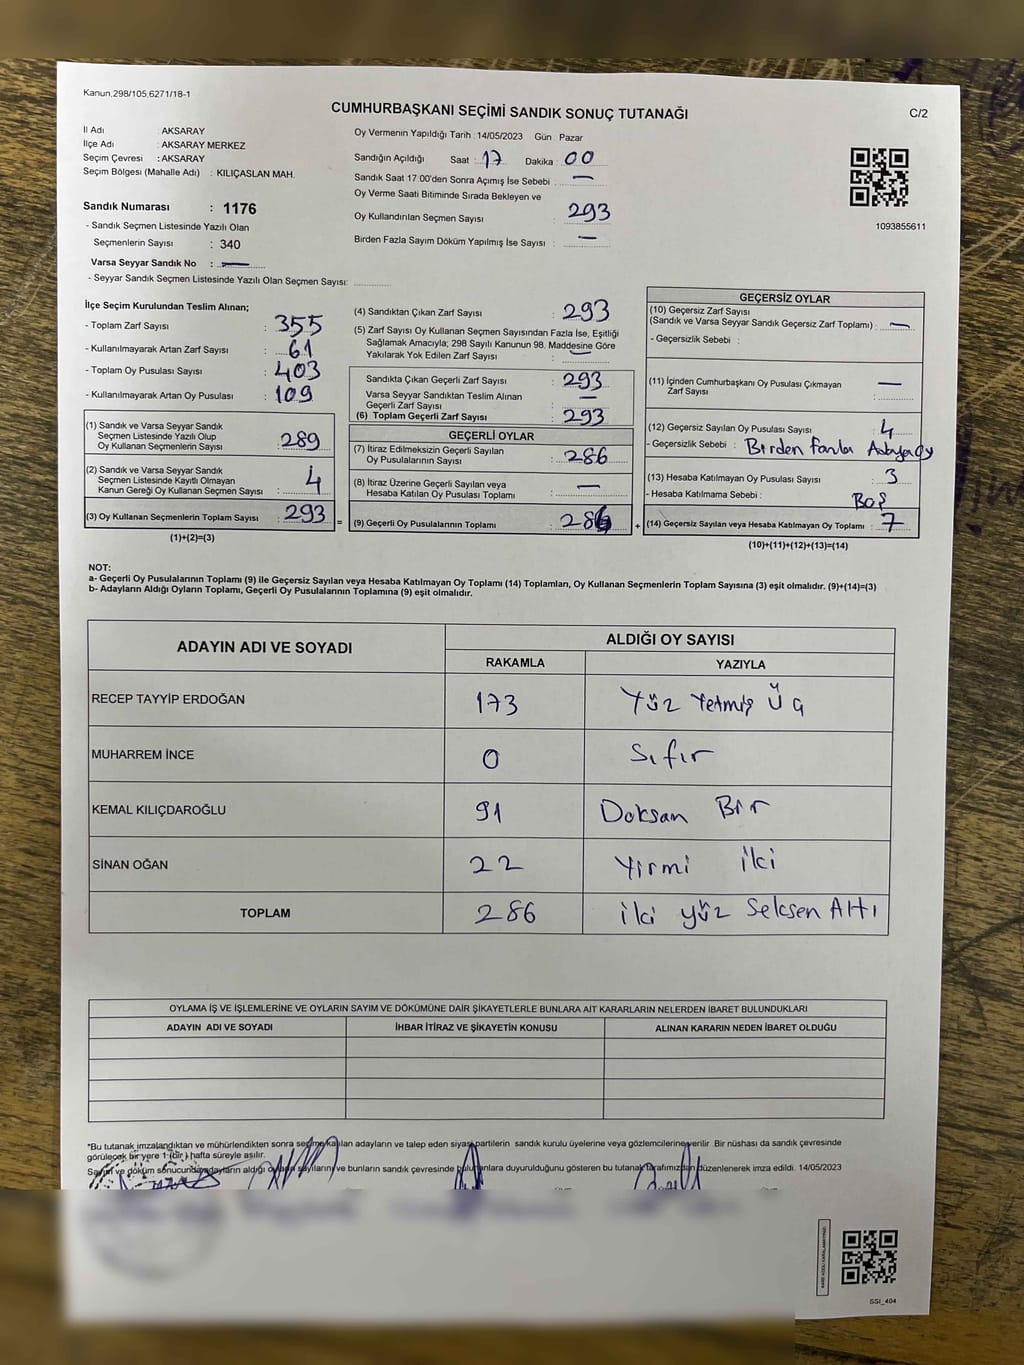 Kanun,298/105,6271/18-1
CUMHURBAŞKANI SEÇİMİ SANDIK SONUÇ TUTANAĞI
C/2
İl Adı : AKSARAY
İlçe Adı : AKSARAY MERKEZ
Seçim Çevresi : AKSARAY
Seçim Bölgesi (Mahalle Adı) : KILIÇASLAN MAH.
Sandık Numarası : 1176
- Sandık Seçmen Listesinde Yazılı Olan
Seçmenlerin Sayısı : 340
Varsa Seyyar Sandık No : —
- Seyyar Sandık Seçmen Listesinde Yazılı Olan Seçmen Sayısı:
Oy Vermenin Yapıldığı Tarih : 14/05/2023 Gün : Pazar
Sandığın Açıldığı Saat : 17 Dakika : 00
Sandık Saat 17:00'den Sonra Açımış İse Sebebi : —
Oy Verme Saati Bitiminde Sırada Bekleyen ve
Oy Kullandırılan Seçmen Sayısı : 293
Birden Fazla Sayım Döküm Yapılmış İse Sayısı : —
1093855611
İlçe Seçim Kurulundan Teslim Alınan;
- Toplam Zarf Sayısı : 355
- Kullanılmayarak Artan Zarf Sayısı : 61
- Toplam Oy Pusulası Sayısı : 403
- Kullanılmayarak Artan Oy Pusulası : 109
(1) Sandık ve Varsa Seyyar Sandık
Seçmen Listesinde Yazılı Olup
Oy Kullanan Seçmenlerin Sayısı : 289
(2) Sandık ve Varsa Seyyar Sandık
Seçmen Listesinde Kayıtlı Olmayan
Kanun Gereği Oy Kullanan Seçmen Sayısı : 4
(3) Oy Kullanan Seçmenlerin Toplam Sayısı : 293 =
(1)+(2)=(3)
(4) Sandıktan Çıkan Zarf Sayısı : 293
(5) Zarf Sayısı Oy Kullanan Seçmen Sayısından Fazla İse, Eşitliği
Sağlamak Amacıyla; 298 Sayılı Kanunun 98. Maddesine Göre
Yakılarak Yok Edilen Zarf Sayısı : —
Sandıkta Çıkan Geçerli Zarf Sayısı : 293
Varsa Seyyar Sandıktan Teslim Alınan
Geçerli Zarf Sayısı : —
(6) Toplam Geçerli Zarf Sayısı : 293
GEÇERLİ OYLAR
(7) İtiraz Edilmeksizin Geçerli Sayılan
Oy Pusulalarının Sayısı : 286
(8) İtiraz Üzerine Geçerli Sayılan veya
Hesaba Katılan Oy Pusulası Toplamı : —
(9) Geçerli Oy Pusulalarının Toplamı : 286 +
GEÇERSİZ OYLAR
(10) Geçersiz Zarf Sayısı
(Sandık ve Varsa Seyyar Sandık Geçersiz Zarf Toplamı) : —
- Geçersizlik Sebebi :
(11) İçinden Cumhurbaşkanı Oy Pusulası Çıkmayan
Zarf Sayısı : —
(12) Geçersiz Sayılan Oy Pusulası Sayısı : 4
- Geçersizlik Sebebi : Birden fazla Adaya oy
(13) Hesaba Katılmayan Oy Pusulası Sayısı : 3
- Hesaba Katılmama Sebebi : Boş
(14) Geçersiz Sayılan veya Hesaba Katılmayan Oy Toplamı : 7
(10)+(11)+(12)+(13)=(14)
NOT:
a- Geçerli Oy Pusulalarının Toplamı (9) ile Geçersiz Sayılan veya Hesaba Katılmayan Oy Toplamı (14) Toplamları, Oy Kullanan Seçmenlerin Toplam Sayısına (3) eşit olmalıdır. (9)+(14)=(3)
b- Adayların Aldığı Oyların Toplamı, Geçerli Oy Pusulalarının Toplamına (9) eşit olmalıdır.
ADAYIN ADI VE SOYADI ALDIĞI OY SAYISI
RAKAMLA YAZIYLA
RECEP TAYYİP ERDOĞAN 173 Yüz Yetmiş Üç
MUHARREM İNCE 0 Sıfır
KEMAL KILIÇDAROĞLU 91 Doksan Bir
SİNAN OĞAN 22 Yirmi iki
TOPLAM 286 iki yüz Seksen Altı
OYLAMA İŞ VE İŞLEMLERİNE VE OYLARIN SAYIM VE DÖKÜMÜNE DAİR ŞİKAYETLERLE BUNLARA AİT KARARLARIN NELERDEN İBARET BULUNDUKLARI
ADAYIN ADI VE SOYADI İHBAR İTİRAZ VE ŞİKAYETİN KONUSU ALINAN KARARIN NEDEN İBARET OLDUĞU
*Bu tutanak imzalandıktan ve mühürlendikten sonra seçime katılan adayların ve talep eden siyasi partilerin sandık kurulu üyelerine veya gözlemcilerine verilir. Bir nüshası da sandık çevresinde
görülecek bir yere 1 (bir ) hafta süreyle asılır.
Sayım ve döküm sonucunda adayların aldığı oyların sayılarını ve bunların sandık çevresinde bulunanlara duyurulduğunu gösteren bu tutanak tarafımızdan düzenlenerek imza edildi. 14/05/2023
SSI_404